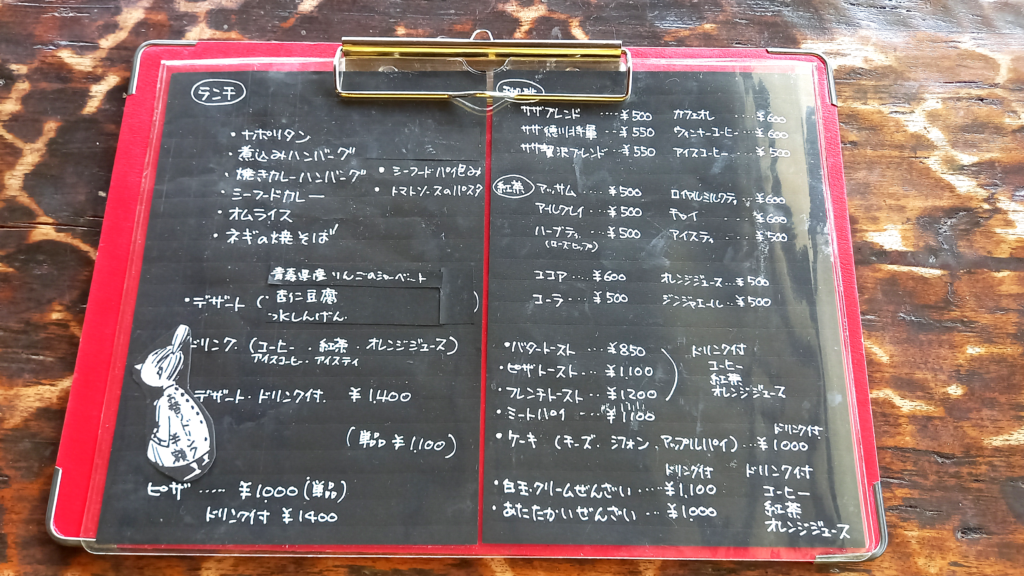 ランチ
・ナポリタン
・煮込みハンバーグ
・焼きカレーハンバーグ
・シーフードカレー
・オムライス
・ネギの焼そば
・シーフードパイ包み
・トマトソースのパスタ
青森県産りんごのシャーベット
・デザート (杏仁豆腐
水しんげん)
ドリンク (コーヒー・紅茶・オレンジジュース)
アイスコーヒー・アイスティ
デザート・ドリンク付 ¥1,400
(単品 ¥1,100)
ピザ …… ¥1000 (単品)
ドリンク付 ¥1400
サザブレンド …… ¥500
サザ徳川将軍 … ¥550
サザ贅沢ブレンド … ¥550
カフェオレ … ¥600
ウィンナーコーヒー … ¥600
アイスコーヒー … ¥500
紅茶
アッサム … ¥500
アールグレイ … ¥500
ハーブティ … ¥500
(ローズヒップ)
ロイヤルミルクティ … ¥600
チャイ … ¥600
アイスティ … ¥500
ココア … ¥600
コーラ … ¥500
オレンジジュース … ¥500
ジンジャエール … ¥500
・バタートースト … ¥850
・ピザトースト … ¥1,100
・フレンチトースト … ¥1200
・ミートパイ … ¥1100
ドリンク付
コーヒー
紅茶
オレンジジュース
ドリンク付
・ケーキ (チーズ・シフォン・アップルパイ) … ¥1000
ドリンク付
・白玉クリームぜんざい … ¥1,100
・あたたかいぜんざい … ¥1,000
ドリンク付
コーヒー
紅茶
オレンジジュース